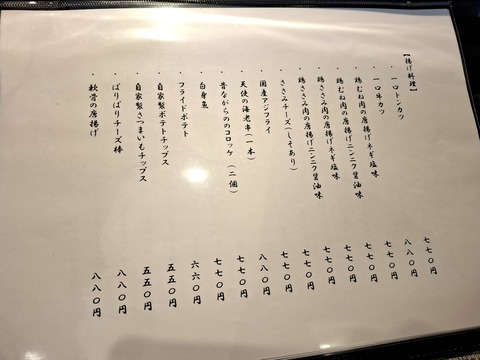 【揚げ料理】
・一口トンカツ 七七〇円
・一口牛カツ 八八〇円
・鶏むね肉の唐揚げネギ塩味 七七〇円
・鶏むね肉の唐揚げニンニク醤油味 七七〇円
・鶏ささみ肉の唐揚げネギ塩味 七七〇円
・鶏ささみ肉の唐揚げニンニク醤油味 七七〇円
・ささみチーズ(しそあり) 七七〇円
・国産アジフライ 七七〇円
・天使の海老串(一本) 八八〇円
・昔ながらののコロッケ(二個) 七七〇円
・白身魚 七七〇円
・フライドポテト 六六〇円
・自家製ポテトチップス 五五〇円
・自家製さつまいもチップス 五五〇円
・ぱりぱりチーズ棒 八八〇円
・軟骨の唐揚げ 八八〇円